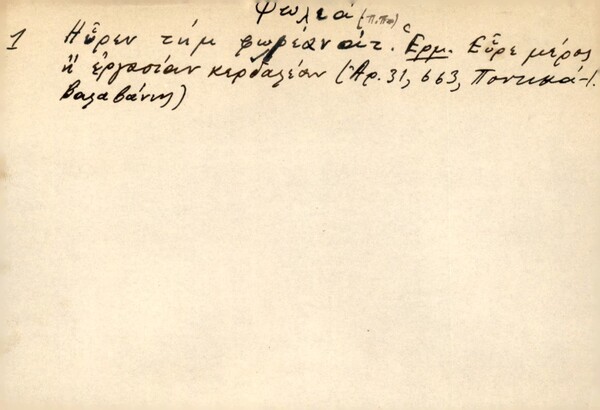 Φωλεά (π.πφ)
1 Ηὗρεν τὴμ φωλεάν ἀτ. Ἑρμ. Εὗρε μέρος
ἢ ἐργασίαν κερδαλέαν (Ἀρ. 31, 663, Ποντικά-Ι.
Βαλαβάνης)